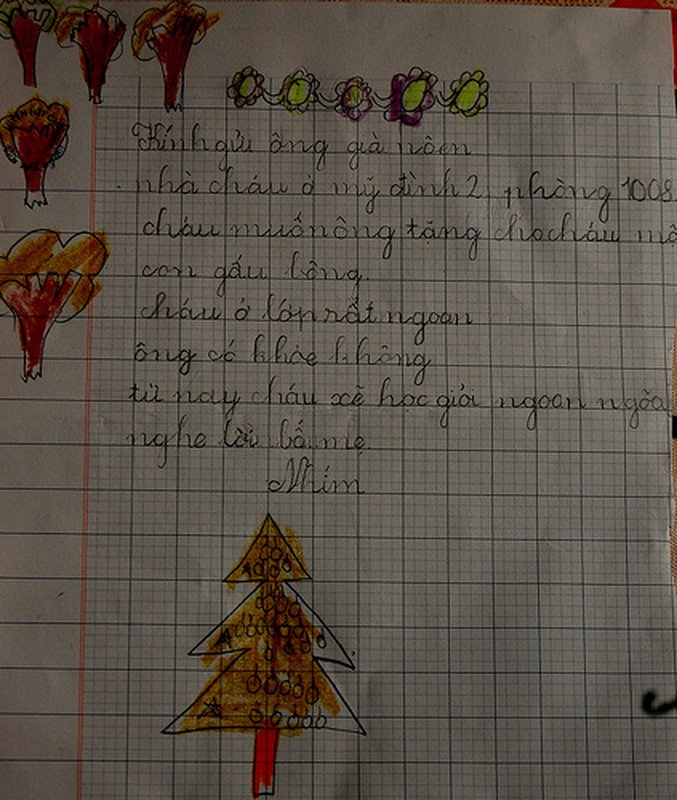 Kính gửi ông già nôen
nhà cháu ở mỹ đình 2, phòng 1008
cháu muốn ông tặng cho cháu mộ
con gấu bông.
cháu ở lớp rất ngoan
ông có khỏe không
từ nay cháu xẽ học giỏi ngoan ngõa
nghe lời bố mẹ
Nhím